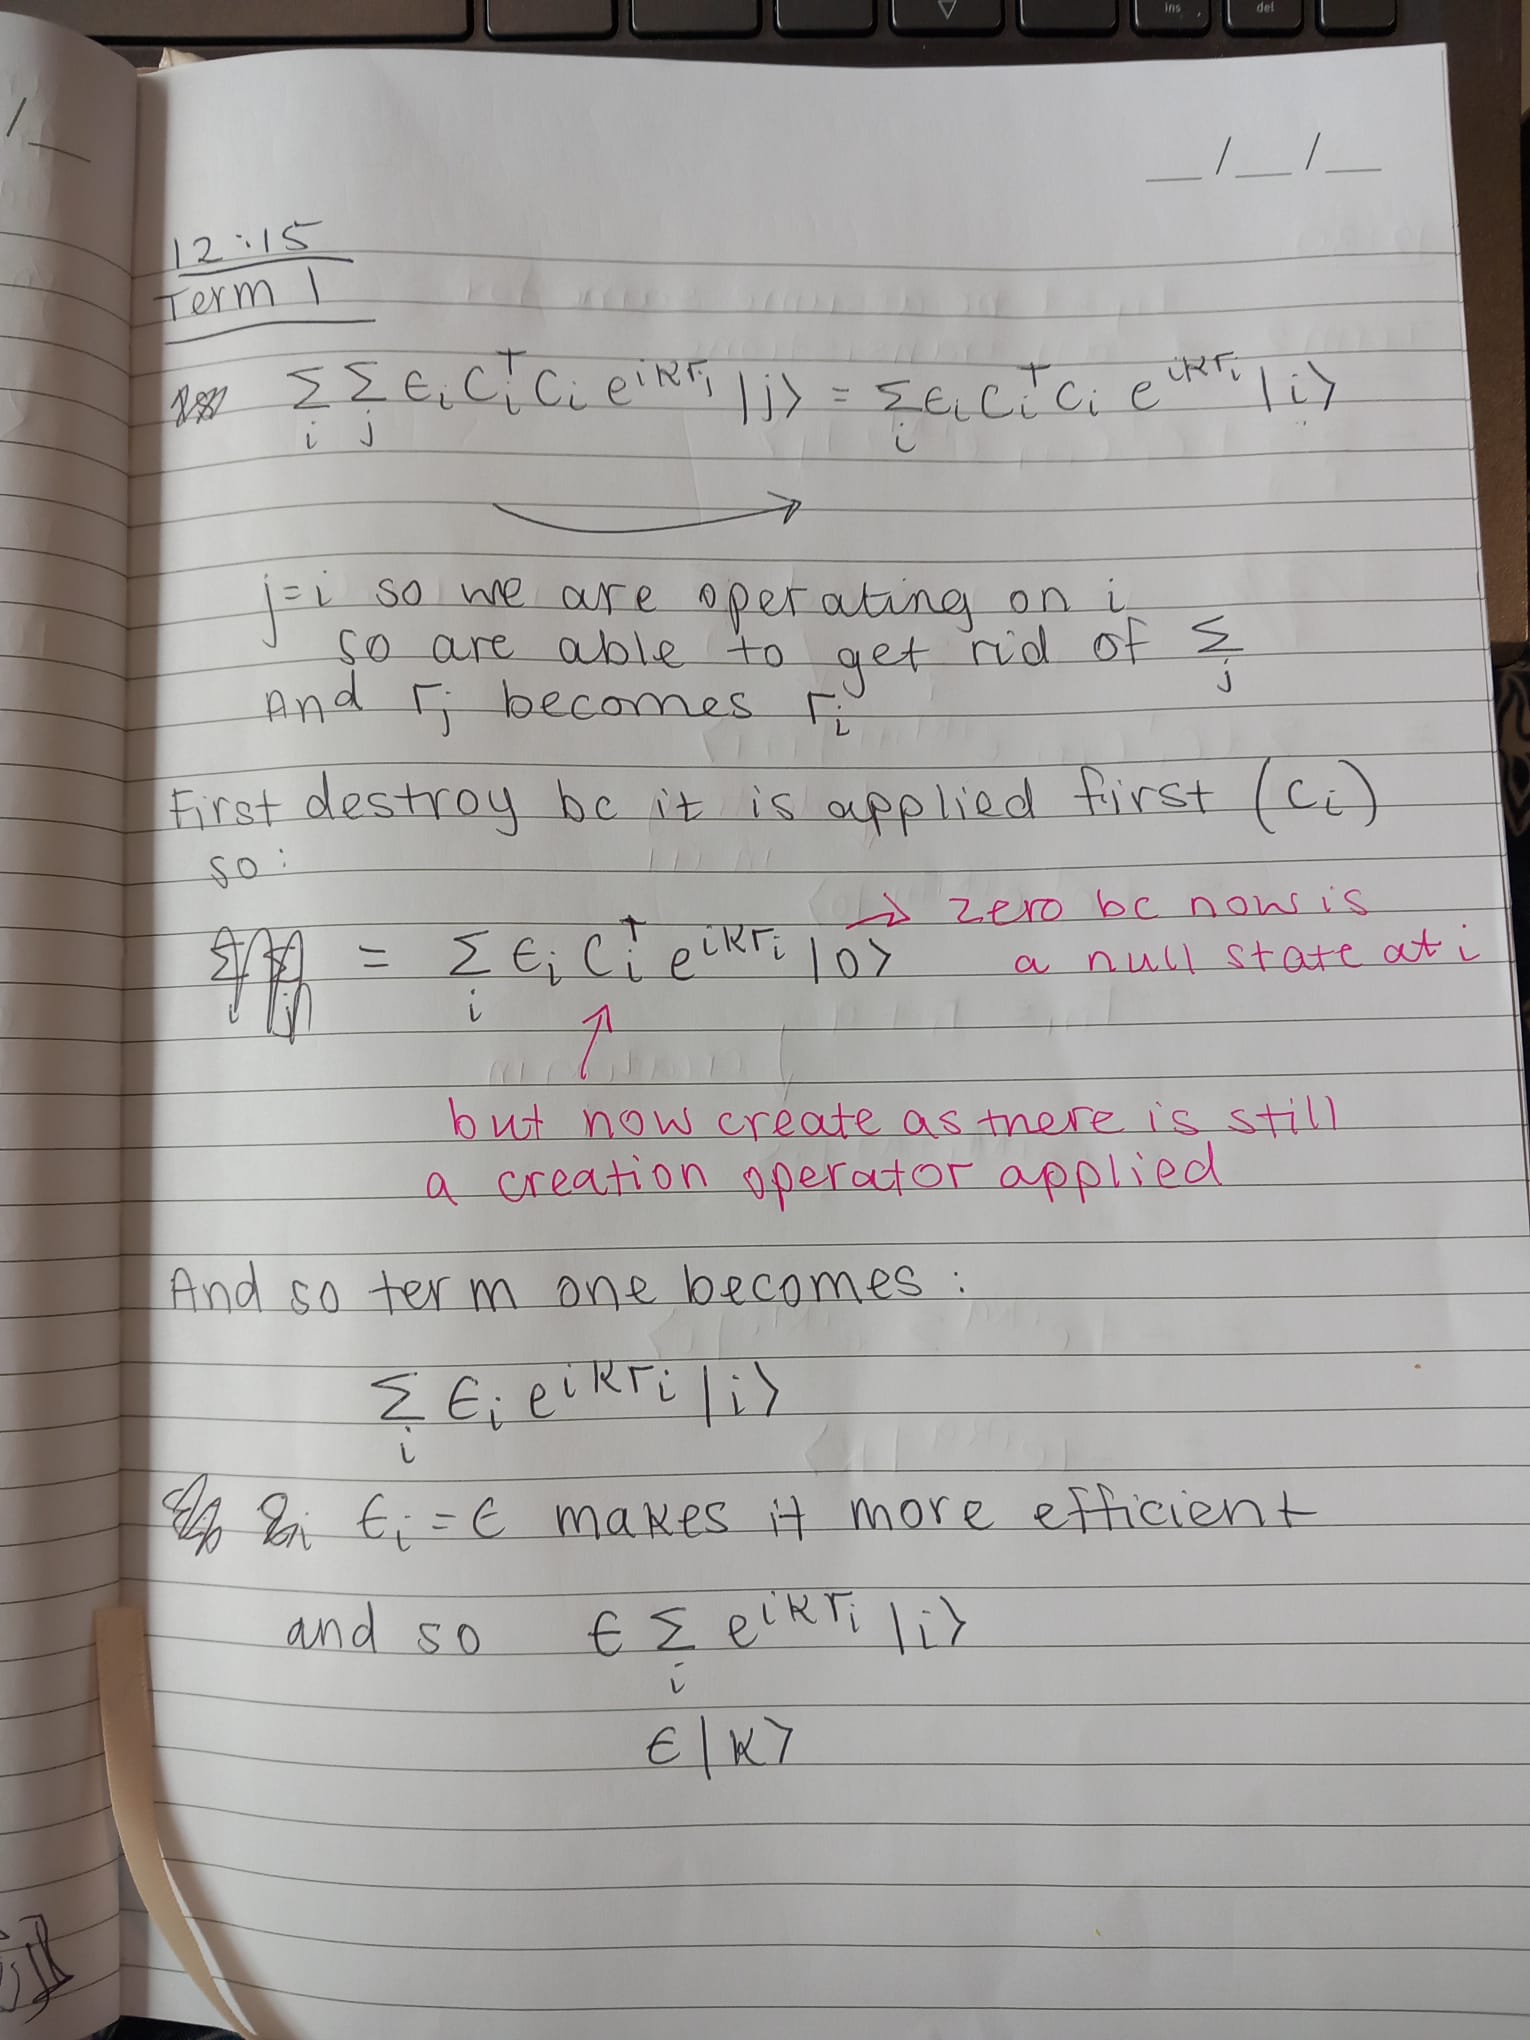 _/_/_
12:15
Term 1
∑_i ∑_j ϵ_i c_i† c_i e^{ikr_j} |j> = ∑_i ϵ_i c_i† c_i e^{ikr_i} |i>
j=i so we are operating on i
so are able to get rid of ∑_j
And r_j becomes r_i
First destroy bc it is applied first (c_i)
so:
= ∑_i ϵ_i c_i† e^{ikr_i} |0> → zero bc now is
a null state at i
but now create as there is still
a creation operator applied
And so term one becomes:
∑_i ϵ_i e^{ikr_i} |i>
ϵ_i = ϵ makes it more efficient
and so ϵ ∑_i e^{ikr_i} |i>
ϵ|k>